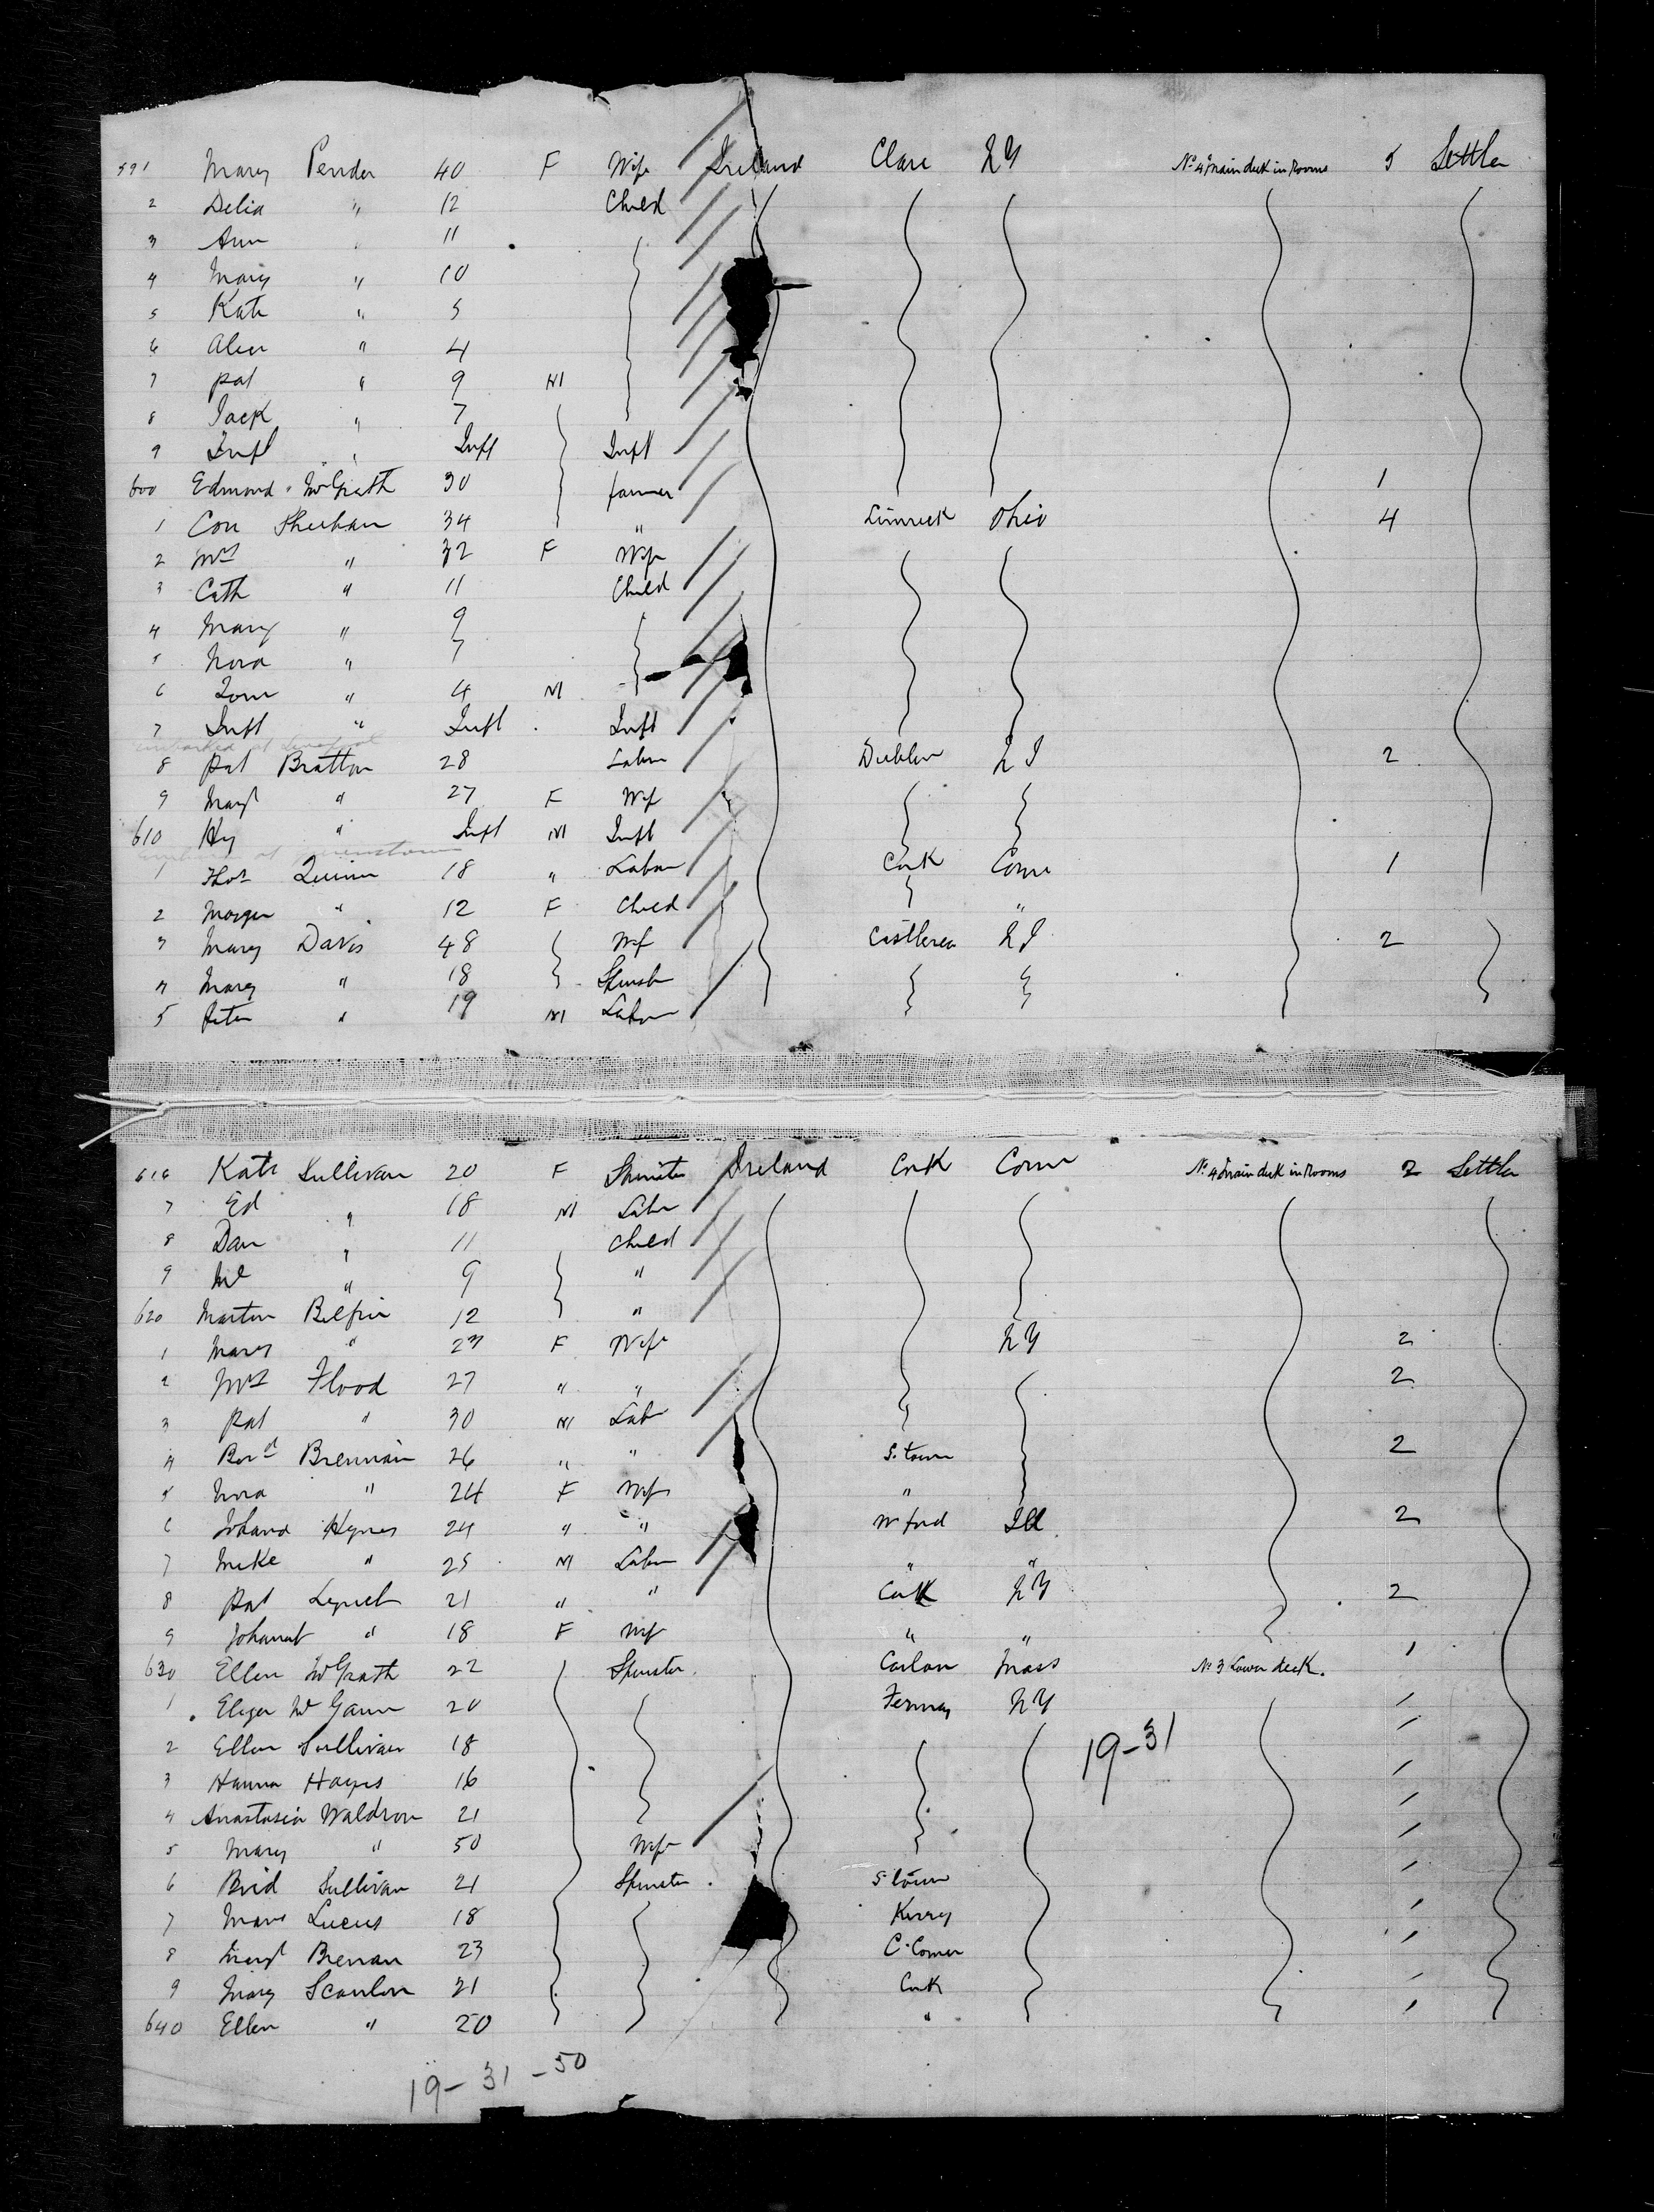 591 Mary Pender 40 F Wife Ireland Clare NY No 4 Main deck in Rooms 5 Settler
2 Delia " 12 Child
3 Ann " 11
4 Mary " 10
5 Kate " 5
6 " 4
7 Pat " 9 M
8 Jack " 7
9 Inft " Inft Inft
600 Edmond McGrath 30 farmer 1
1 Con Sheehan 34 " Limrick Ohio 4
2 Mrs " 32 F Wife
3 Cath " 11 Child
4 Mary " 9
5 Nora " 7
6 Tom " 4 M
7 Inft " Inft Inft
8 Pat Bratton 28 Labor Dublin 2
9 Margt " 27 F Wife
610 Hy " Inft M Inft
1 Thos Quinn 18 " Labor Cork Conn 1
2 " 12 F Child "
3 Mary Davis 48 Wife Castlerea 2
4 Mary " 18 Spinster
5 Peter " 19 M Labor
616 Kate Sullivan 20 F Spinster Ireland Cork Conn No 4 Main deck in Rooms 2 Settler
7 Ed " 18 M Labor
8 Dan " 11 Child
9 Ml " 9 "
620 Martin 12 "
1 Mary " 23 F Wife NY 2
2 Mrs Flood 27 " " 2
3 Pat " 30 M Labr
4 Bernd Brennan 26 " " S. town 2
5 Nora " 24 F Wife "
6 Johana Hynes 24 " " W ford Ill 2
7 Mike " 25 M Labor " "
8 Pat Lynch 21 " " Cork NY 2
9 Johanah " 18 F Wife " "
630 Ellen McGrath 22 Spinster Carlow Mass No 3 Lower deck. 1
1 Eliza McGann 20 NY 1
2 Ellen Sullivan 18 1
19-31
3 Hanna Hayes 16 1
4 Anastasia Waldron 21 1
5 Mary " 50 Wife 1
6 Brid Sullivan 21 Spinster S town 1
7 Mary Lucus 18 Kerry 1
8 Margt Brenan 23 C. Comer 1
9 Mary Scanlon 21 Cork 1
640 Ellen " 20 " 1
19-31-50